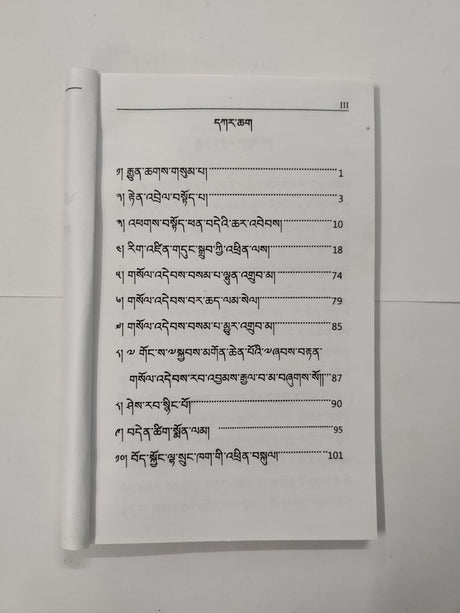 III
དཀར་ཆག
༡། རྒྱུན་ཆགས་གསུམ་པ། 1
༢། རྟེན་འབྲེལ་བསྟོད་པ། 3
༣། འཕགས་བསྟོད་ཕན་བདེའི་ཆར་འབེབས། 10
༤། རིག་འཛིན་གདུང་སྒྲུབ་ཀྱི་འཕྲིན་ལས། 18
༥། གསོལ་འདེབས་བསམ་པ་ལྷུན་འགྲུབ་མ། 74
༦། གསོལ་འདེབས་བར་ཆད་ལམ་སེལ། 79
༧། གསོལ་འདེབས་བསམ་པ་མྱུར་འགྲུབ་མ། 85
༨། ༧ གོང་ས་༧སྐྱབས་མགོན་ཆེན་པོའི་༧ཞབས་བརྟན་
གསོལ་འདེབས་རབ་འབྱམས་རྒྱལ་བ་མ་བཞུགས་སོ།། 87
༨། ཤེས་རབ་སྙིང་པོ། 90
༩། བདེན་ཚིག་སྨོན་ལམ། 95
༡༠། བོད་སྐྱོང་ལྷ་སྲུང་ཁག་གི་འཕྲིན་བསྐུལ། 101